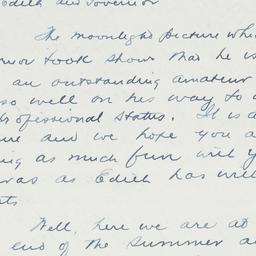 Edith and Governor
The moonlight picture whi
nor took shows that he is
an outstanding amateur
so well on his way to a
professional status. It is a
ure and we hope you a
ng as much fun with y
eras as Edith has with
ts.
Well, here we are at
end of the summer a